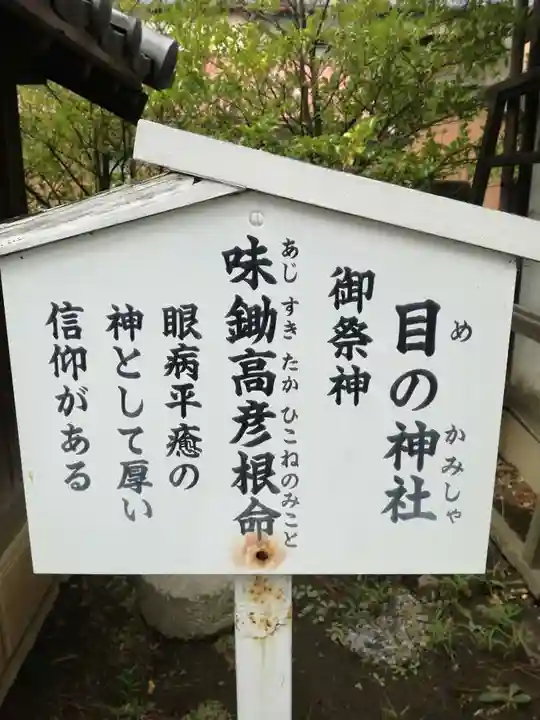 目の神社
め かみしゃ
御祭神
味鋤高彦根命
あじすきたかひこねのみこと
眼病平癒の
神として厚い
信仰がある